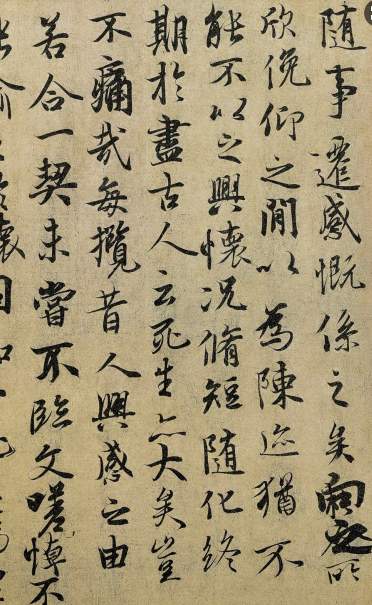 随事遷感慨係之矣向之所
欣俛仰之閒以為陳迹猶不
能不以之興懷况脩短随化終
期於盡古人云死生亦大矣豈
不痛哉每攬昔人興感之由
若合一契未嘗不臨文嗟悼不